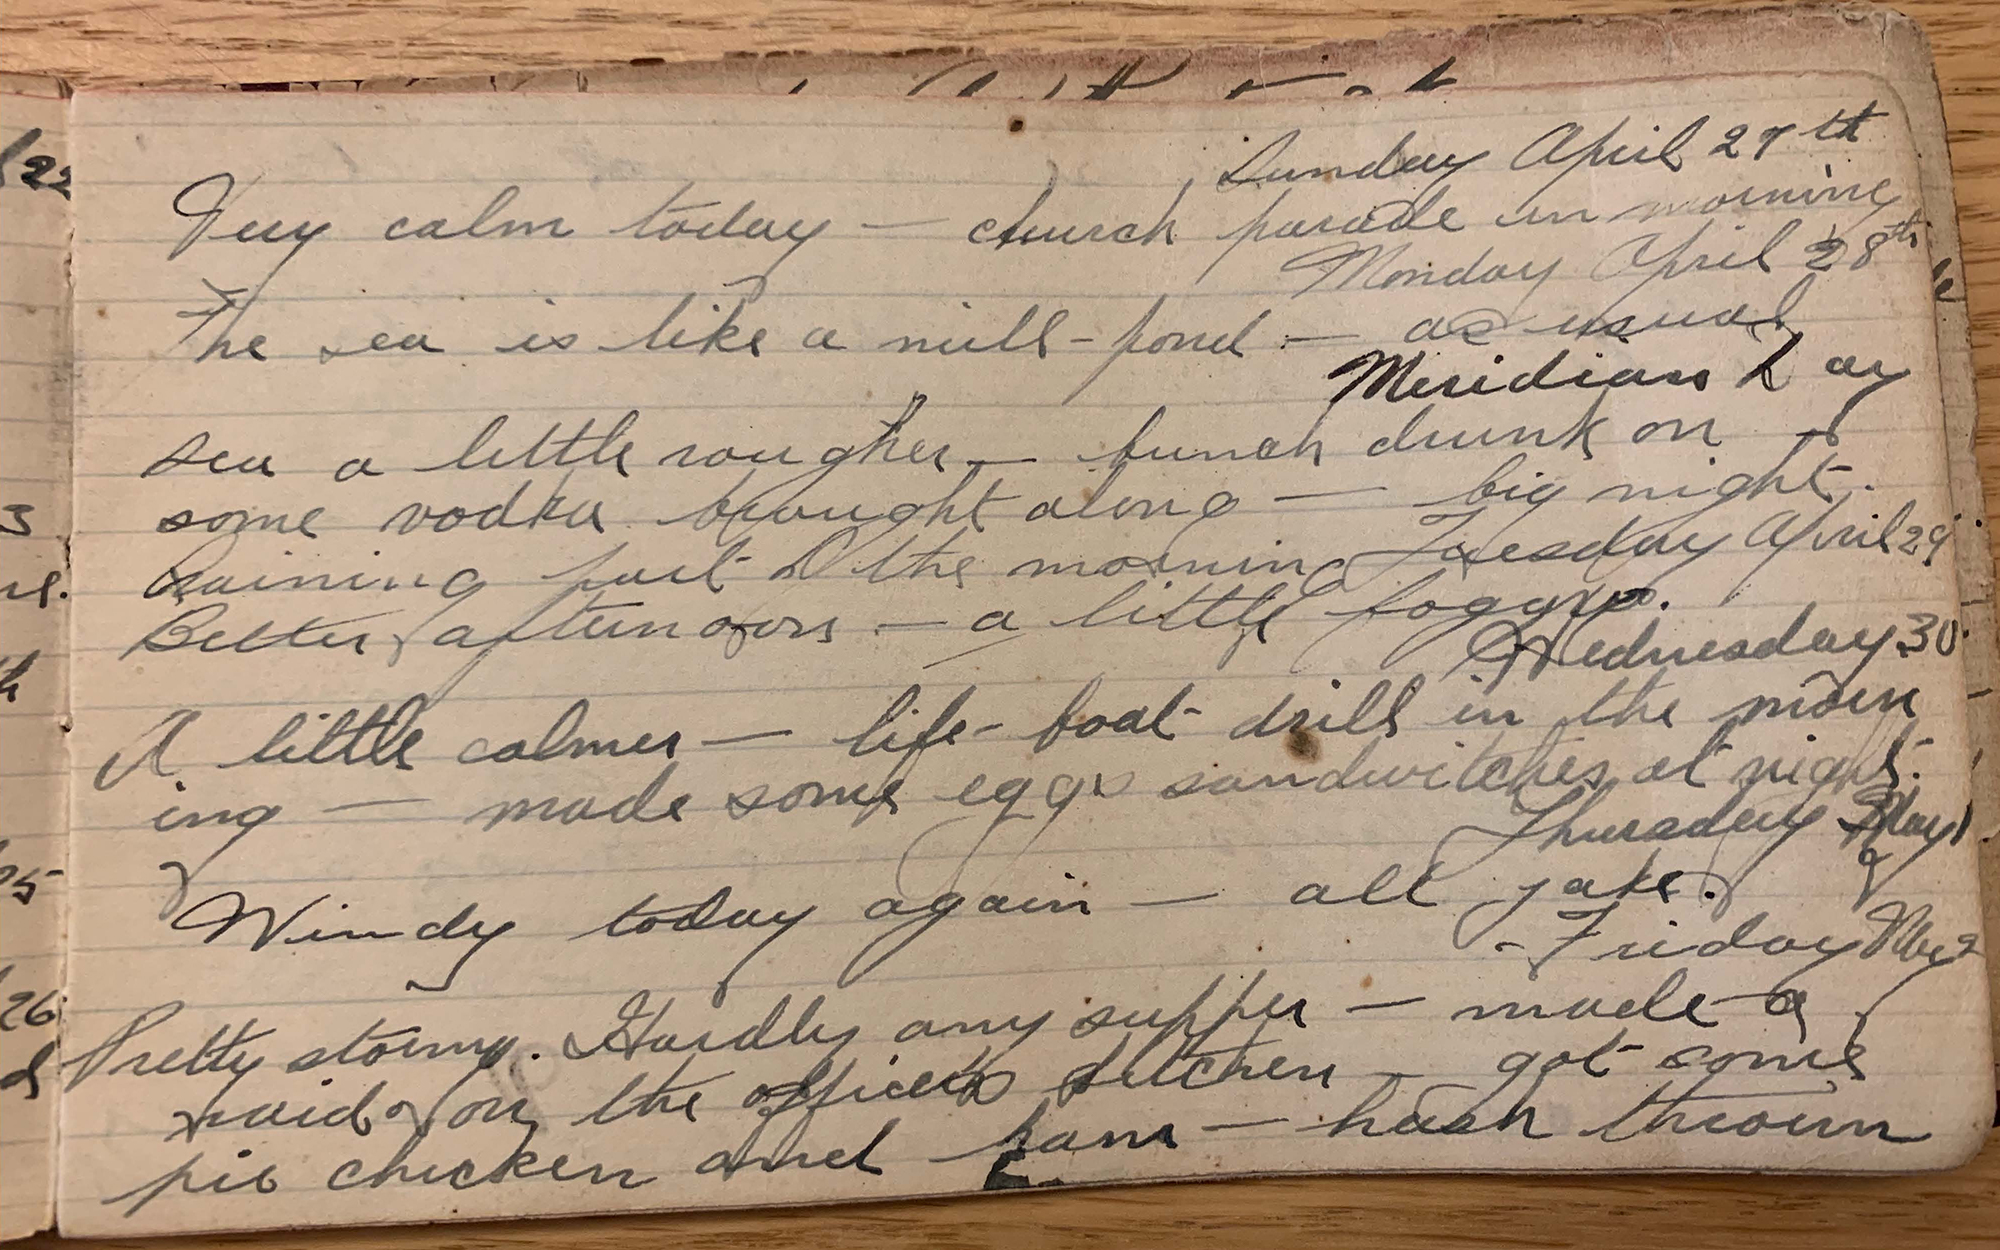 Sunday April 27th
Very calm today — church parade in morning
Monday April 28th
The sea is like a mill-pond — as usual
Meridian Day
sea a little rougher — bunch drunk on
some vodka brought along — big night.
Tuesday April 29
Raining part of the morning
Better afternoon — a little foggy.
Wednesday 30
A little calmer — life-boat drill in the morn
ing — made some eggs sandwitches at night.
Thursday May 1
Windy today again — all jake.
Friday May 2
Pretty stormy. Hardly any supper — made a
raid on the officers kitchen — got some
pie chicken and ham — hash thrown
22
3
th
25
26
d